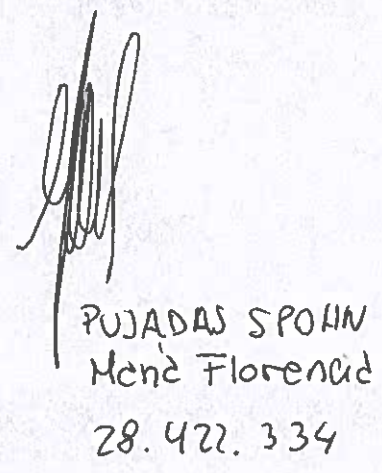 PUJADAS SPOHN
María Florencia
28.422.334